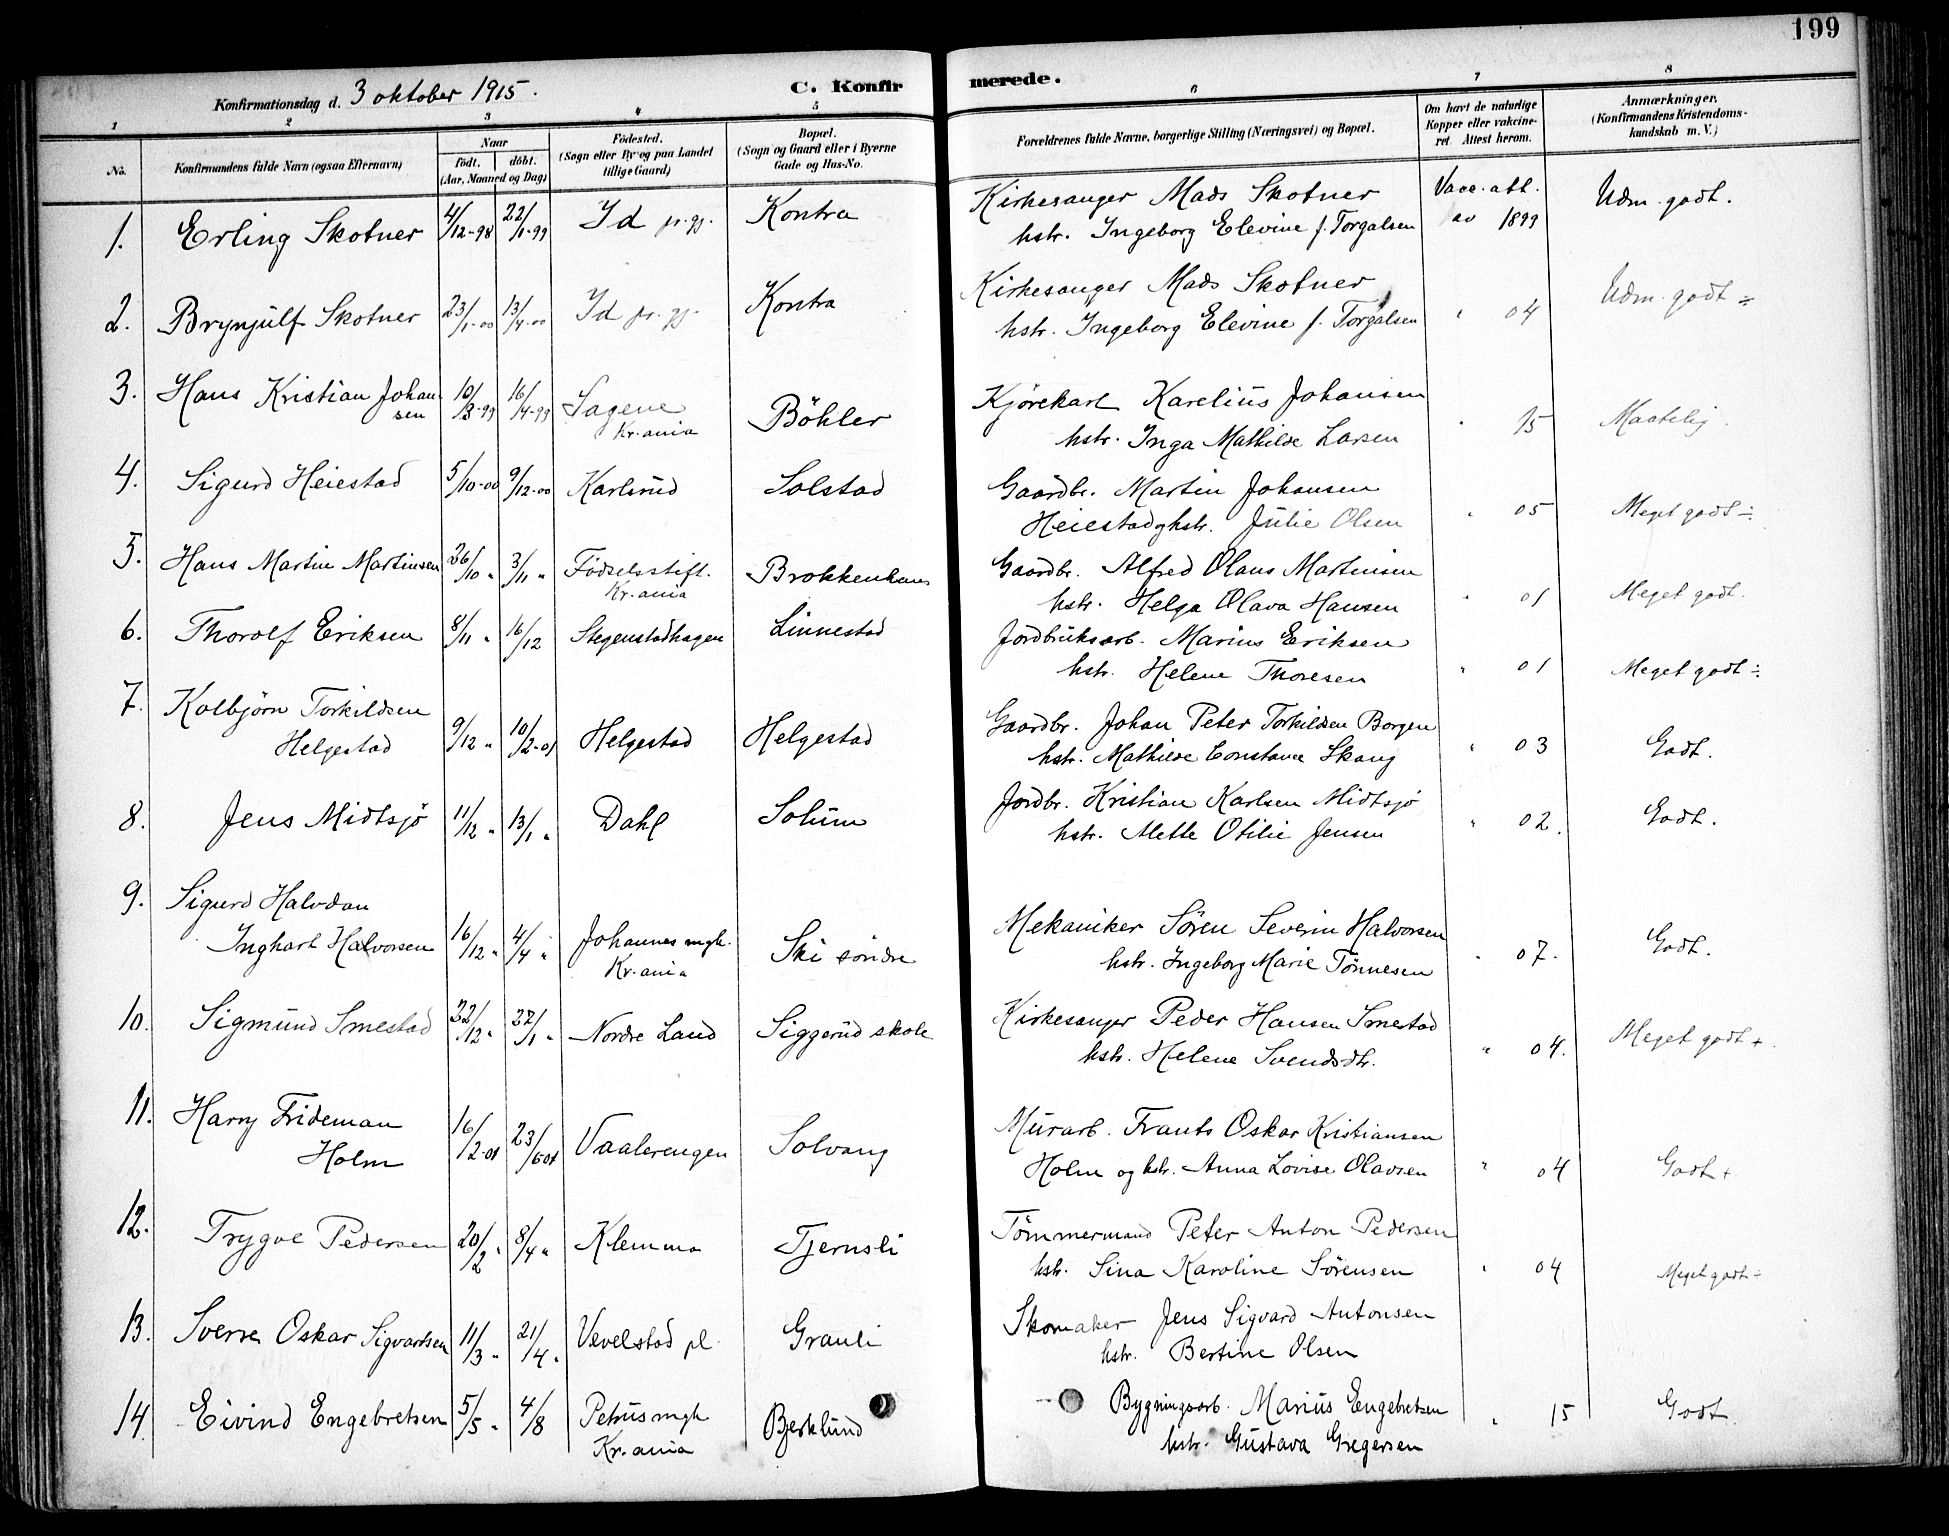 199
Konfirmationsdag d. 3 oktober 1915.
C. Konfirmerede.
1 2 3 4 5 6 7 8
No.
Konfirmandens fulde Navn (ogsaa Efternavn)
Naar
født. døbt.
(Aar, Maaned og Dag)
Fødested.
(Sogn eller By og paa Landet
tillige Gaard)
Bopæl.
(Sogn og Gaard eller i Byerne
Gade og Hus-No.
Forældrenes fulde Navne, borgerlige Stilling (Næringsvei) og Bopæl.
Om havt de naturlige
Kopper eller vakcine-
ret. Attest herom.
Anmærkninger.
(Konfirmandens Kristendoms-
kundskab m. V.)
1. Erling Skotner 4/12-98 22/1-99 Id pr.gj. Kontra Kirkesanger Mads Skotner Vacc. att. Udm. godt.
hstr. Ingeborg Elevine f. Torgalsen av 1899
2. Brynjulf Skotner 23/1-00 13/4-00 Id pr.gj. Kontra Kirkesanger Mads Skotner Udm. godt ÷
hstr. Ingeborg Elevine f. Torgalsen " 04
3. Hans Kristian Johan- 10/3-99 16/4-99 Sagene Böhler Kjörekarl Karelius Johansen
sen Kr.ania hstr. Inga Mathilde Larsen " 15 Maatelig.
4. Sigurd Heiestad 5/10-00 9/12-00 Karlsrud Solstad Gaardbr. Martin Johansen
Heiestad og hstr. Julie Olsen " 05 Meget godt ÷
5. Hans Martin Martinsen 26/10 " 3/11 " Födselsstift. Brokkenhuus Gaardbr. Alfred Olaus Martinsen
Kr.ania hstr. Helga Olava Hansen " 01 Meget godt.
6. Thorolf Eriksen 8/11 " 16/12 Stegenstadhagen Linnestad Jordbruksarb. Marius Eriksen
hstr. Helene Thoresen " 01 Meget godt ÷
7. Kolbjörn Torkildsen Gaardbr. Johan Peter Torkildsen Borgen
Helgestad 9/12 " 10/2-01 Helgestad Helgestad hstr. Mathilde Constance Skaug " 03 Godt.
8. Jens Midtsjö 11/12 " 13/1 " Dahl Solum Jordbr. Kristian Karlsen Midtsjö
hstr. Mette Otilie Jensen " 02. Godt.
9. Sigurd Halvdan
Inghart Halvorsen 16/12 " 4/4 " Johannes mgh. Ski söndre Mekaniker Sören Severin Halvorsen
Kr.ania hstr. Ingeborg Marie Tönnesen " 07. Godt.
10. Sigmund Smestad 22/12 " 22/1 " Nordre Land Siggerud skole Kirkesanger Peder Hansen Smestad
hstr. Helene Svendsdtr. " 04. Meget godt +.
11. Harry Frideman Murarb. Frants Oskar Kristiansen
Holm 16/2-01 23/6-01 Vaalerengen Solvang Holm og hstr. Anna Lovise Olavsen " 04 Godt +
12. Trygve Pedersen 20/2 " 8/4 " Klemma Tjernsli Tömmermand Peter Anton Pedersen
hstr. Sina Karoline Sörensen " 04 Meget godt ÷
13. Sverre Oskar Sigvartsen 11/3 " 21/4 " Vevelstad pl. Granli Skomaker Jens Sigvard Antonsen
hstr. Bertine Olsen
14. Eivind Engebretsen 5/5 " 4/8 Petrus mgh Bjerklund Bygningsarb. Marius Engebretsen " 15 Godt.
Kr.ania hstr. Gustava Gregersen